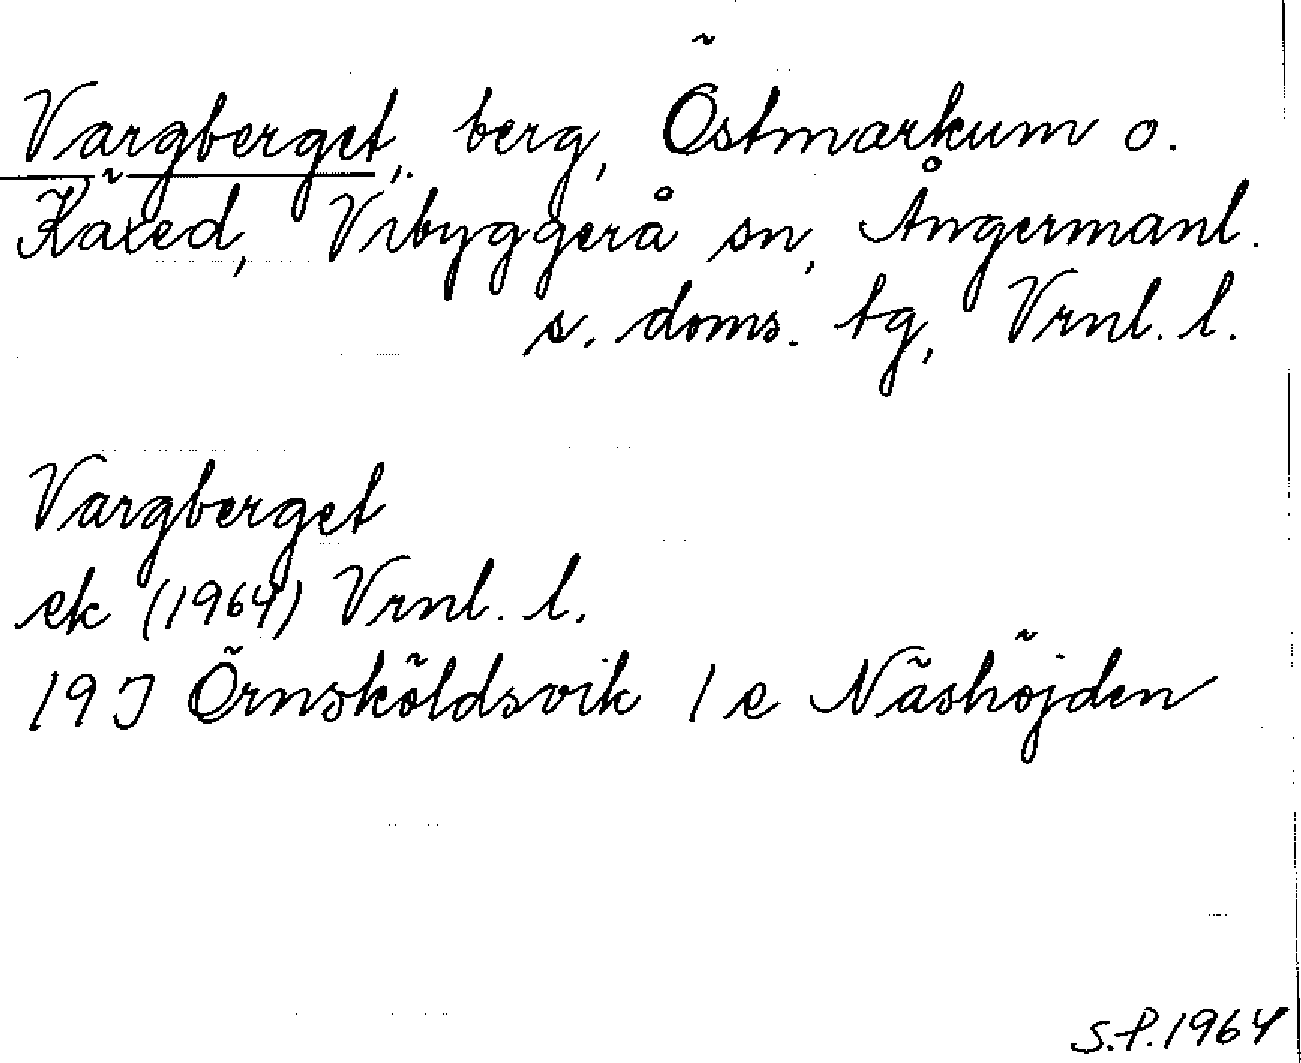 Vargberget, berg, Östmarkum o.
Käxed, Vibyggerå sn, Ångermanl.
s. doms. tg, Vrnl. l.
Vargberget
ek (1964) Vrnl. l.
19J Örnsköldsvik 1 e Näshöjden
S.P.1964